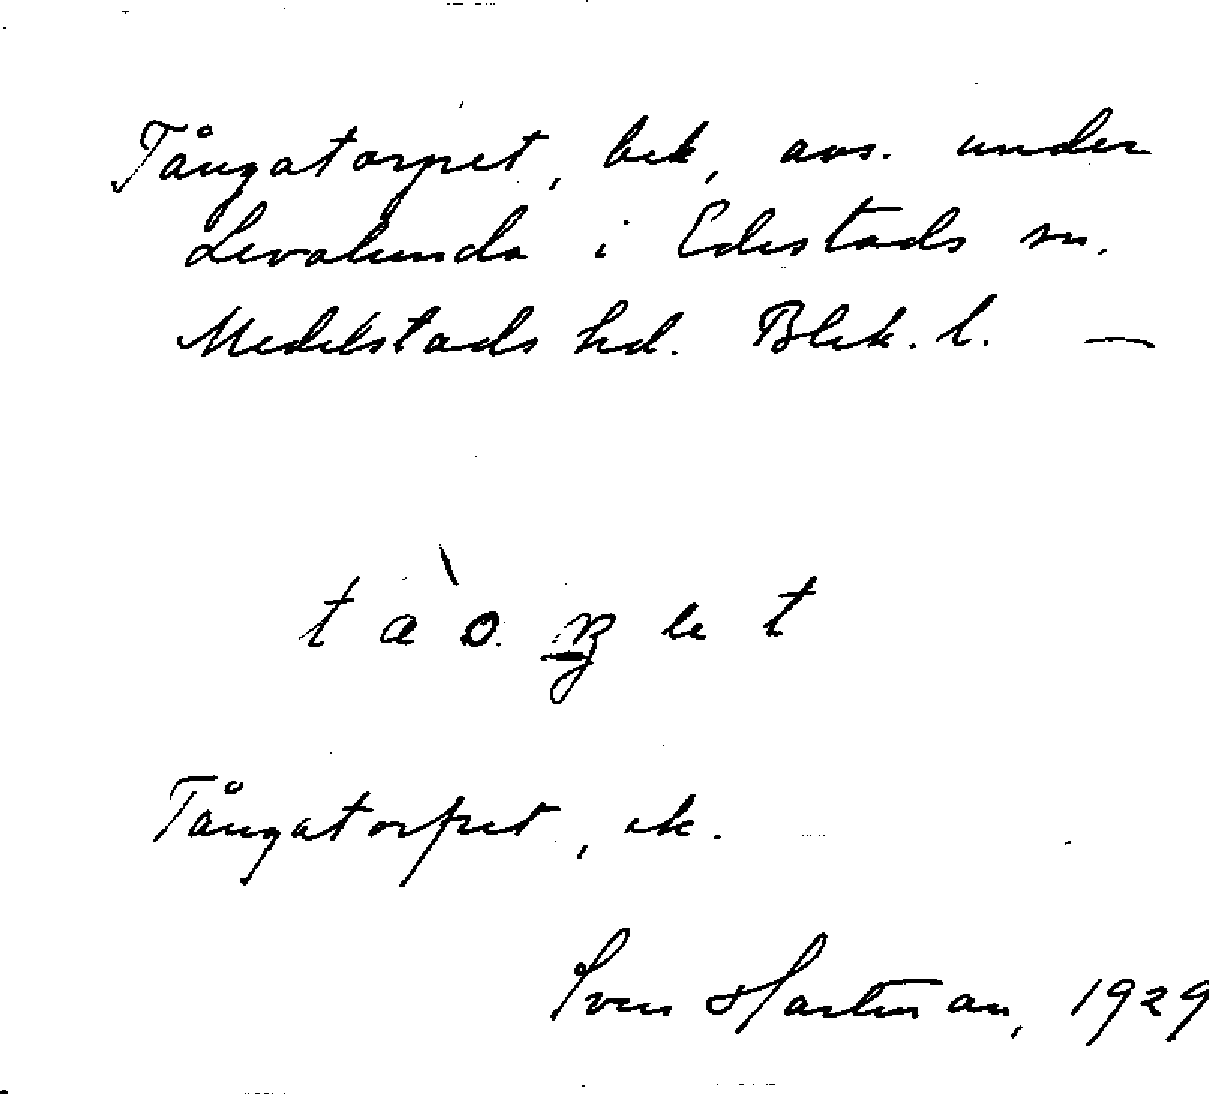 Tångatorpet, bek, avs. under
Levalunda i Edestads sn.
Medelstads hd. Blek. l. —
Tångatorpet, ek.
Sven Hartman, 1929